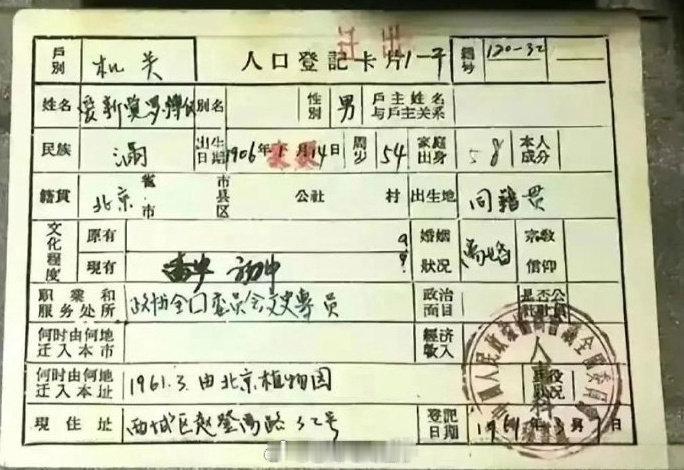 迁出
户别 机关 人口登記卡片1-子 籍号 120-32
姓名 爱新觉罗溥仪 别名 性别 男 戶主姓名与戶主关系
民族 满 出生日期 1906年 月14日 周岁 54 家庭出身 本人成分
籍貫 北京 省市 市县区 公社 村 出生地 同籍贯
文化程度 原有 婚姻狀况 离婚 宗敎信仰
现有 初中
职業和服务处所 政协全囗委员会文史專员 政治面目 是否公
何时由何地迁入本市 经济收入
何时由何地迁入本址 1961.3.由北京植物园
现住址 西城区赵登禹路32号 登記日期 1961年3月 日
人